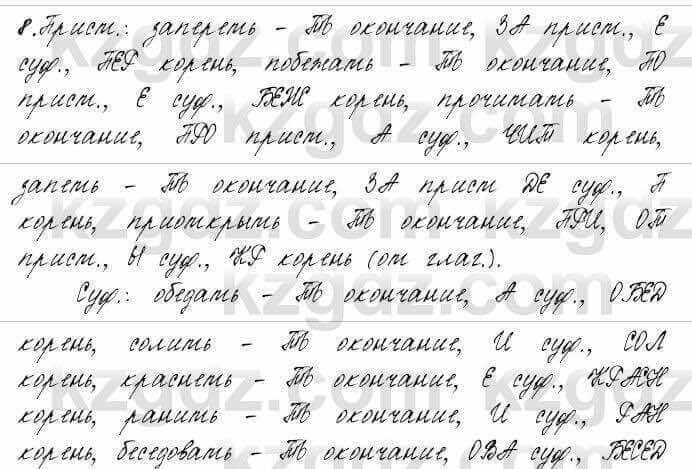 8. Прист.: запереть - ТЬ окончание, ЗА прист., Е
суф., ПЕР корень, побежать - ТЬ окончание, ПО
прист., Е суф., БЕЖ корень, прочитать - ТЬ
окончание, ПРО прист., А суф., ЧИТ корень,
запеть - ТЬ окончание, ЗА прист ДЕ суф., П
корень, приоткрыть - ТЬ окончание, ПРИ, ОТ
прист., Ы суф., КР корень (от глаг.).
Суф.: обедать - ТЬ окончание, А суф., ОБЕД
корень, солить - ТЬ окончание, И суф., СОЛ
корень, краснеть - ТЬ окончание, Е суф., КРАСН
корень, ранить - ТЬ окончание, И суф., РАН
корень, беседовать - ТЬ окончание, ОВА суф., БЕСЕД